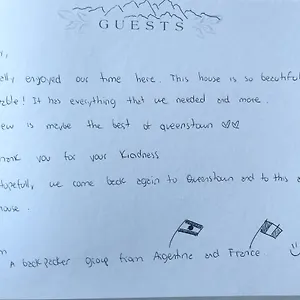 GUESTS
enjoyed our time here. This house is so beautiful
! It has everything that we needed and more.
is maybe the best of queenstown ♡♡
you for your Kindness
Hopefully, we come back again to Queenstown and to this
house.
A backpacker group from Argentine and France